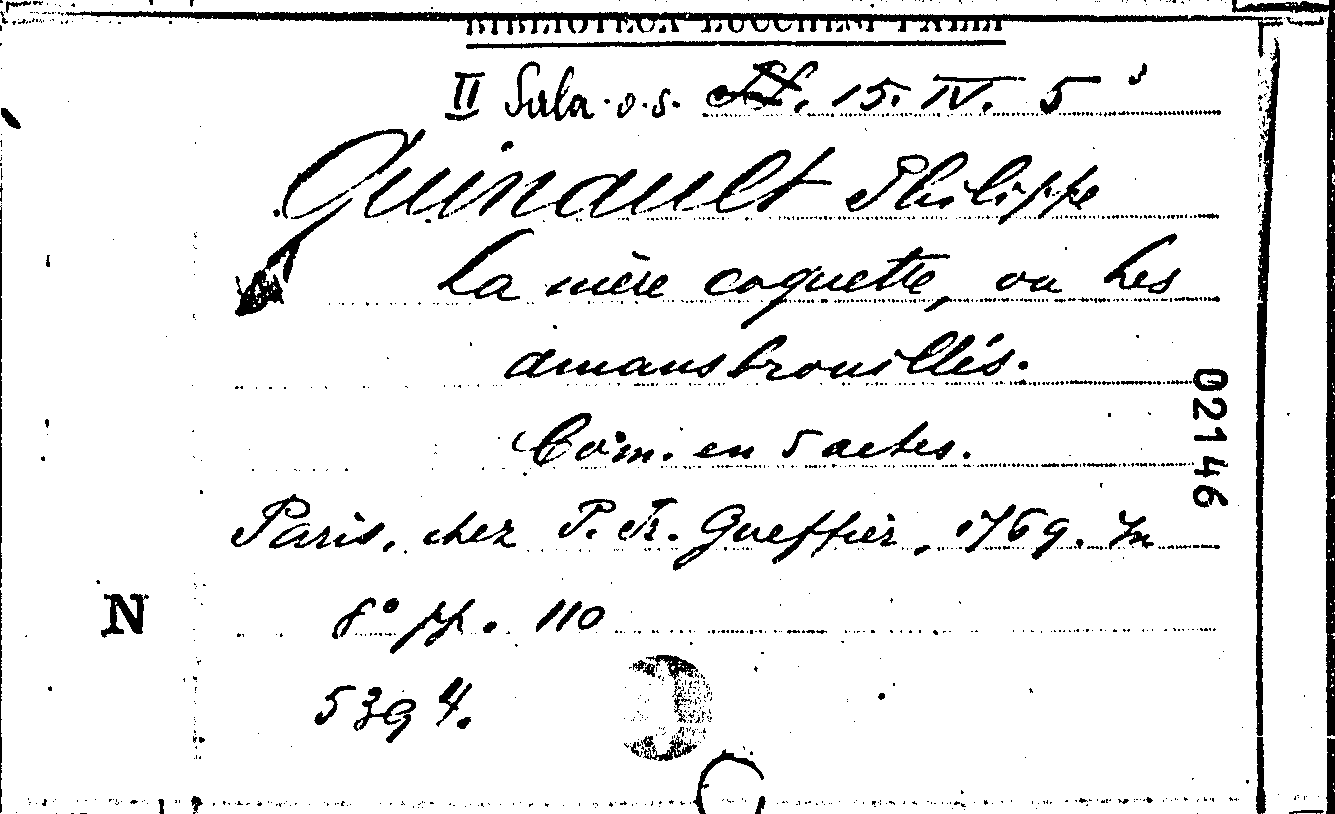 BIBLIOTECA LUCCHESI PALLI
II Sala o.s. 15. IV. 5
Quinault Philippe
La mère coquette, ou Les
amans brouillés.
Com. en 5 actes.
Paris, chez P. Fr. Gueffier, 1769. In
8° pp. 110
5394.
N
02146